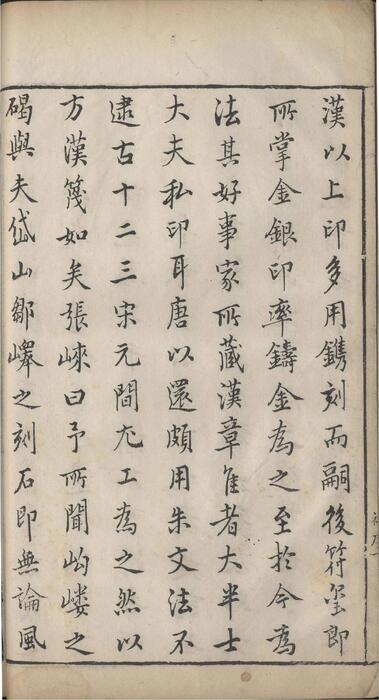 漢以上印多用鐫刻而嗣後符璽郎
所掌金銀印率鑄金為之至於今為
法其好事家所藏漢章隹者大半士
大夫私印耳唐以還頗用朱文法不
逮古十二三宋元間尤工為之然以
方漢箋如矣張崍曰予所聞岣嶁之
碣與夫岱山鄒嶧之刻石即無論風